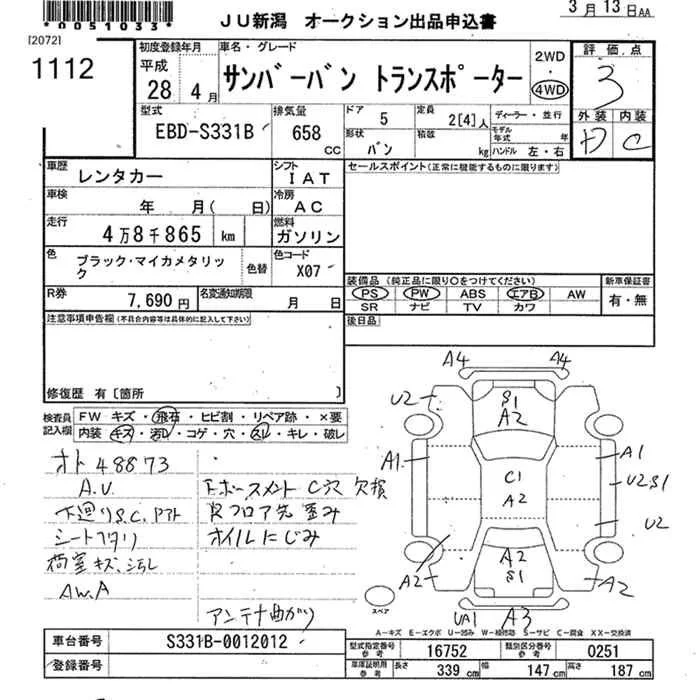 *0051033*
3月13日AA
JU新潟 オークション出品申込書
[2072]
1112
初度登録年月
平成
28 4月
車名・グレード
サンバーバン トランスポーター
2WD
・
4WD
評価点
3
外装 内装
D C
型式
EBD-S331B
排気量
658 CC
ドア 5
形状 バン
定員 2[4]人
積載 kg
ディーラー・並行
モデル年式 年
ハンドル 左・右
車歴 レンタカー
シフト IAT
セールスポイント(正常に機能するものに限ります)
車検 年 月( 日)
冷房 AC
走行 4万8千865 km
燃料 ガソリン
色 ブラック・マイカメタリック
色替
色コード X07
装備品(純正品に限り○をつけてください)
新車保証書
PS PW ABS エアB AW
有・無
SR ナビ TV カワ
R券 7,690円
名変通知期限 月 日
後日品
注意事項申告欄(不具合内容等は具体的に記入して下さい)
修復歴 有〔箇所 〕
検査員記入欄
FW キズ・飛石・ヒビ割・リペア跡・×要
内装 キズ・汚レ・コゲ・穴・スレ・キレ・破レ
オト48873
A.V.
下廻りS.C.
シートヘタリ
荷室キズ、汚れ
AW.A
C穴 欠損
フロア先 歪み
オイルにじみ
アンテナ曲がり
A4 A4
U2
S1
A2
A1 A1
C1
A2
U2S1
U2
A2
S1
A2 A2
スペア
UA1 A3
A―キズ E―エクボ U―凹み W―補修跡 S―サビ C―腐食 XX―交換済
車台番号 S331B-0012012
登録番号
型式指定番号 参考 16752
類別区分番号 参考 0251
車庫証明用 参考 長さ 339 cm 幅 147 cm 高さ 187 cm